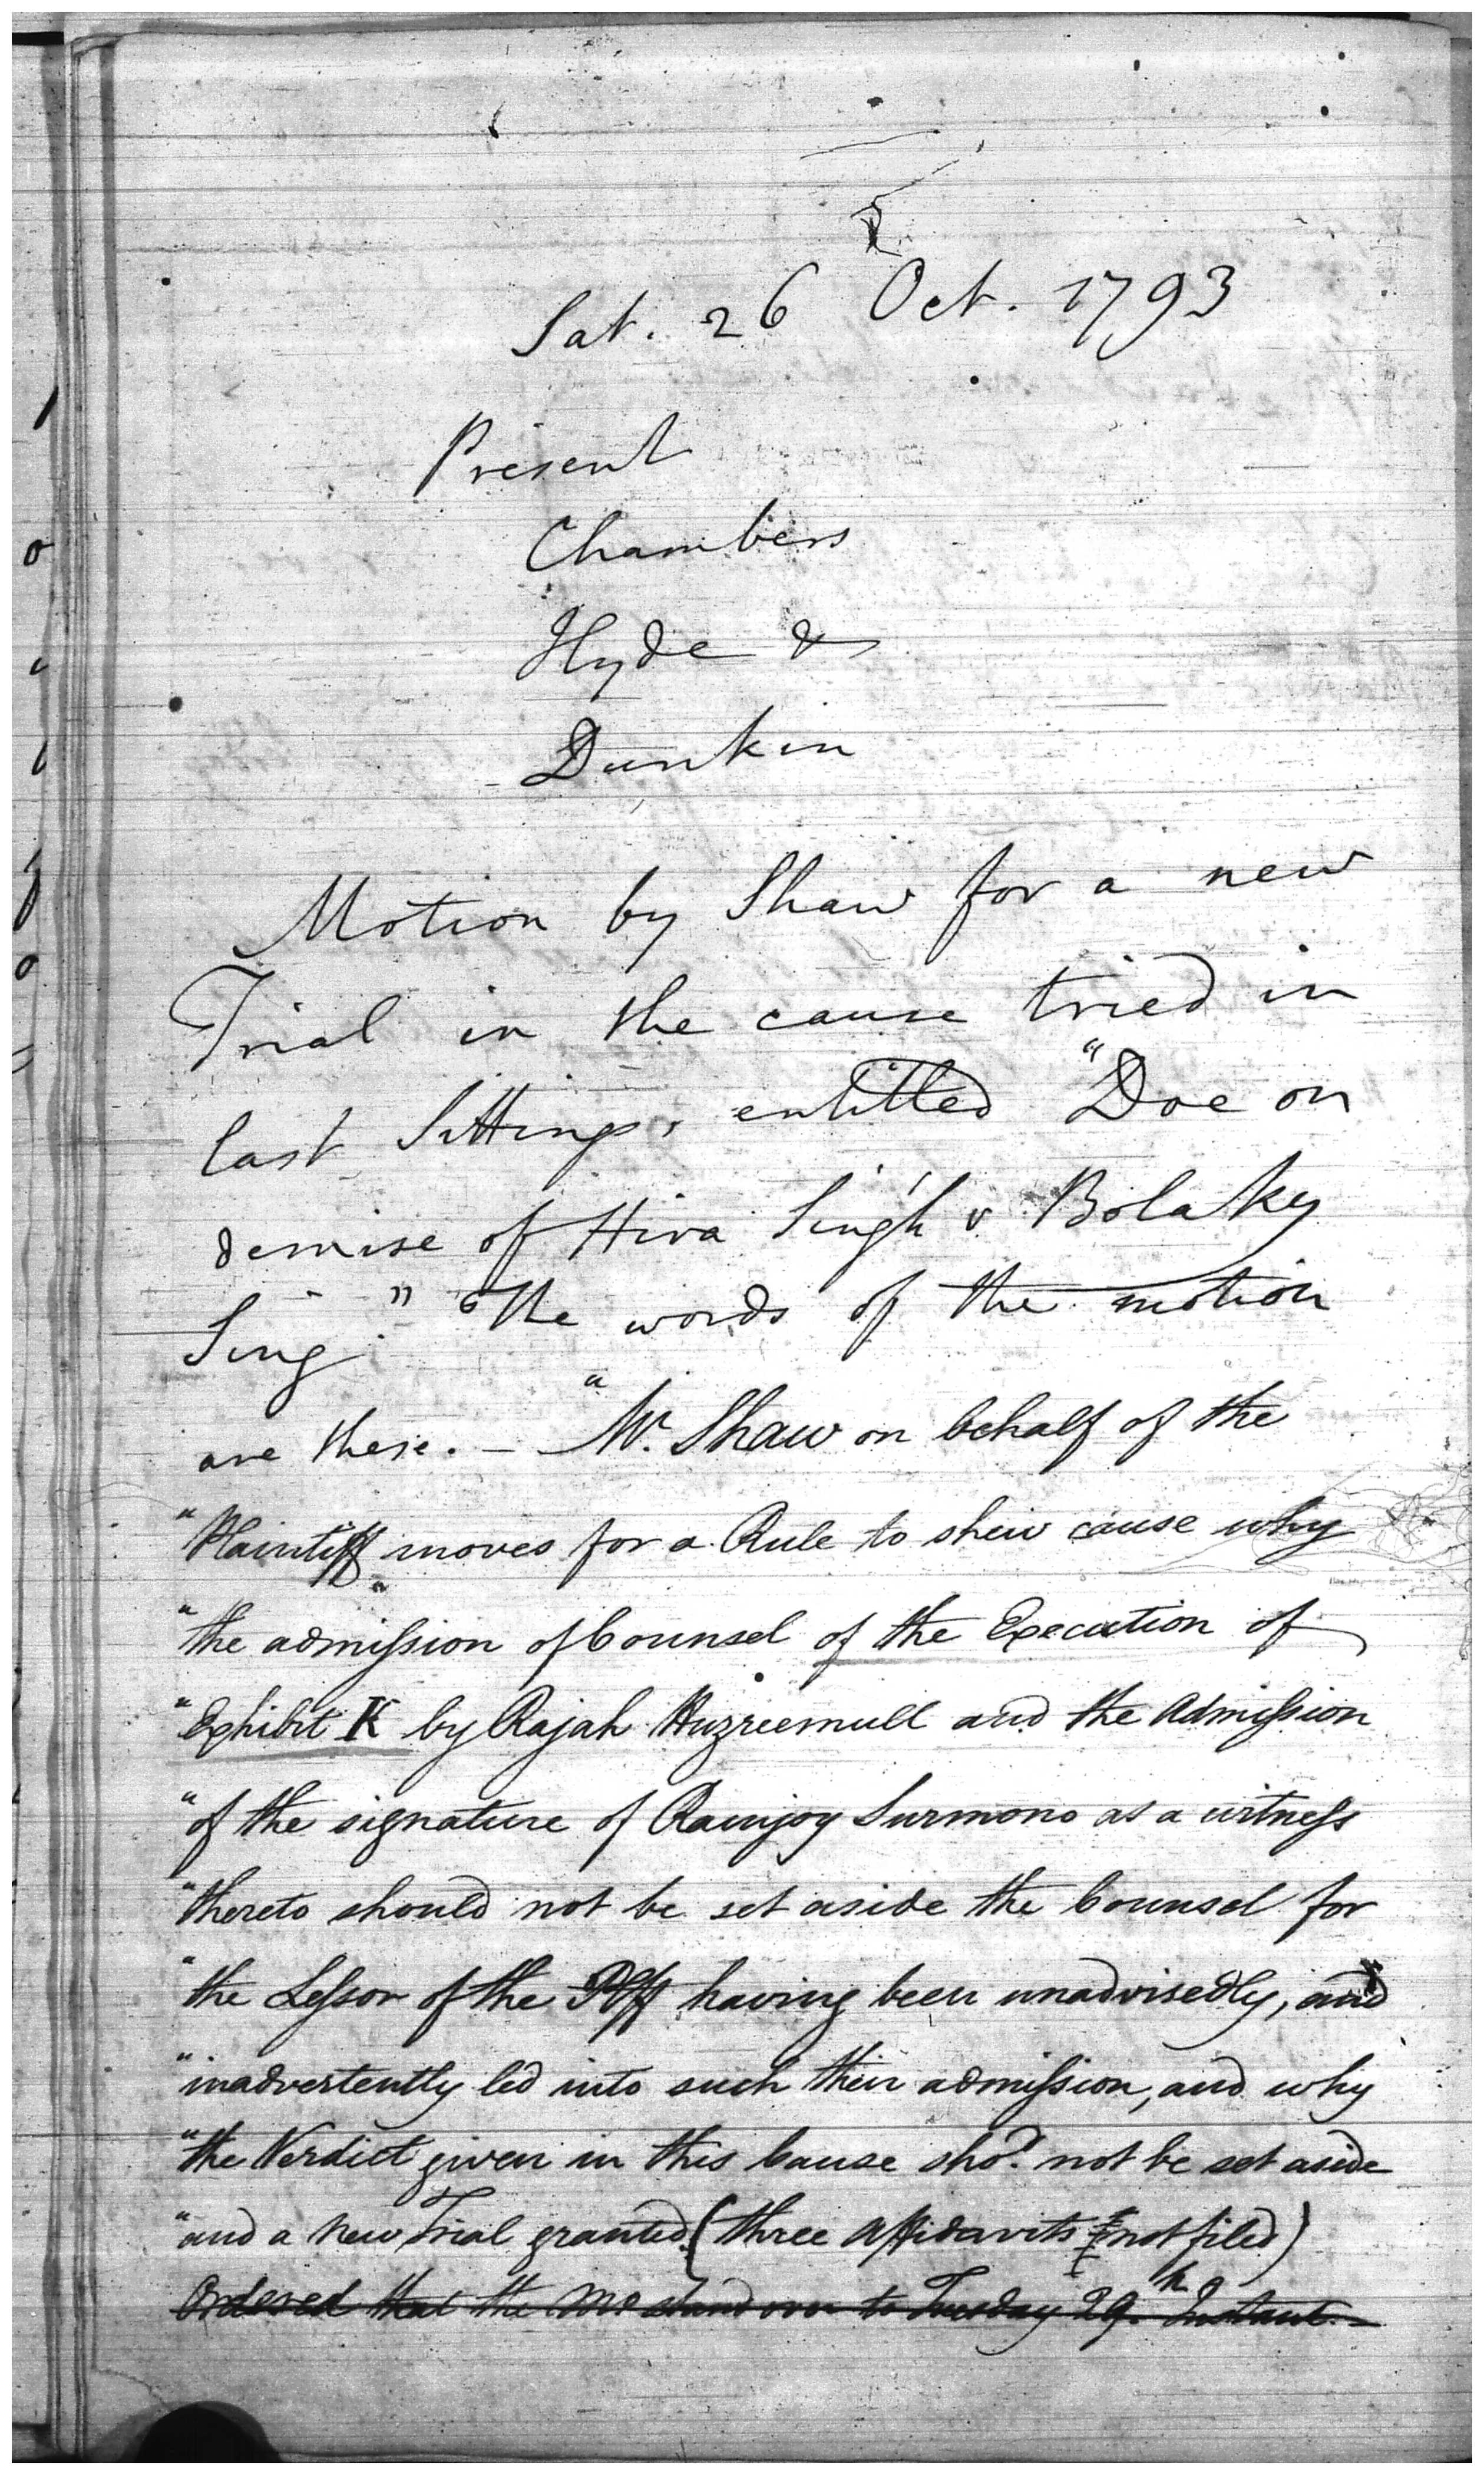 Sat. 26 Oct. 1793
Present
Chambers
Hyde &
Dunkin
Motion by Shaw for a new
Trial in the cause tried in
last Sittings, entitled "Doe on
demise of Hira Singh v. Bolaky
Sing." The words of the motion
are these. — "Mr. Shaw on behalf of the
"Plaintiff moves for a Rule to shew cause why
"the admission of Counsel of the Execution of
"Exhibit K by Rajah Huzreemull and the Admission
"of the signature of Ramjoy Surmono as a witness
"thereto should not be set aside the Counsel for
"the Lessor of the Plff having been unadvisedly, and
"inadvertently led into such their admission, and why
"the Verdict given in this Cause shod. not be set aside
"and a new Trial granted. (three Affidavits not filed)
Ordered that the Mo stand over to Tuesday 29th Instant.—